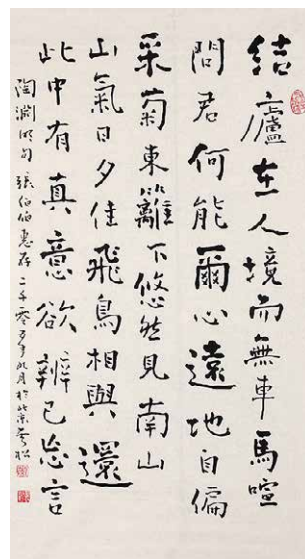 結廬在人境而無車馬喧
問君何能爾心遠地自偏
采菊東籬下悠然見南山
山氣日夕佳飛鳥相與還
此中有真意欲辨已忘言
陶淵明句 張伯伯惠存 二千零五年 月於北京 松